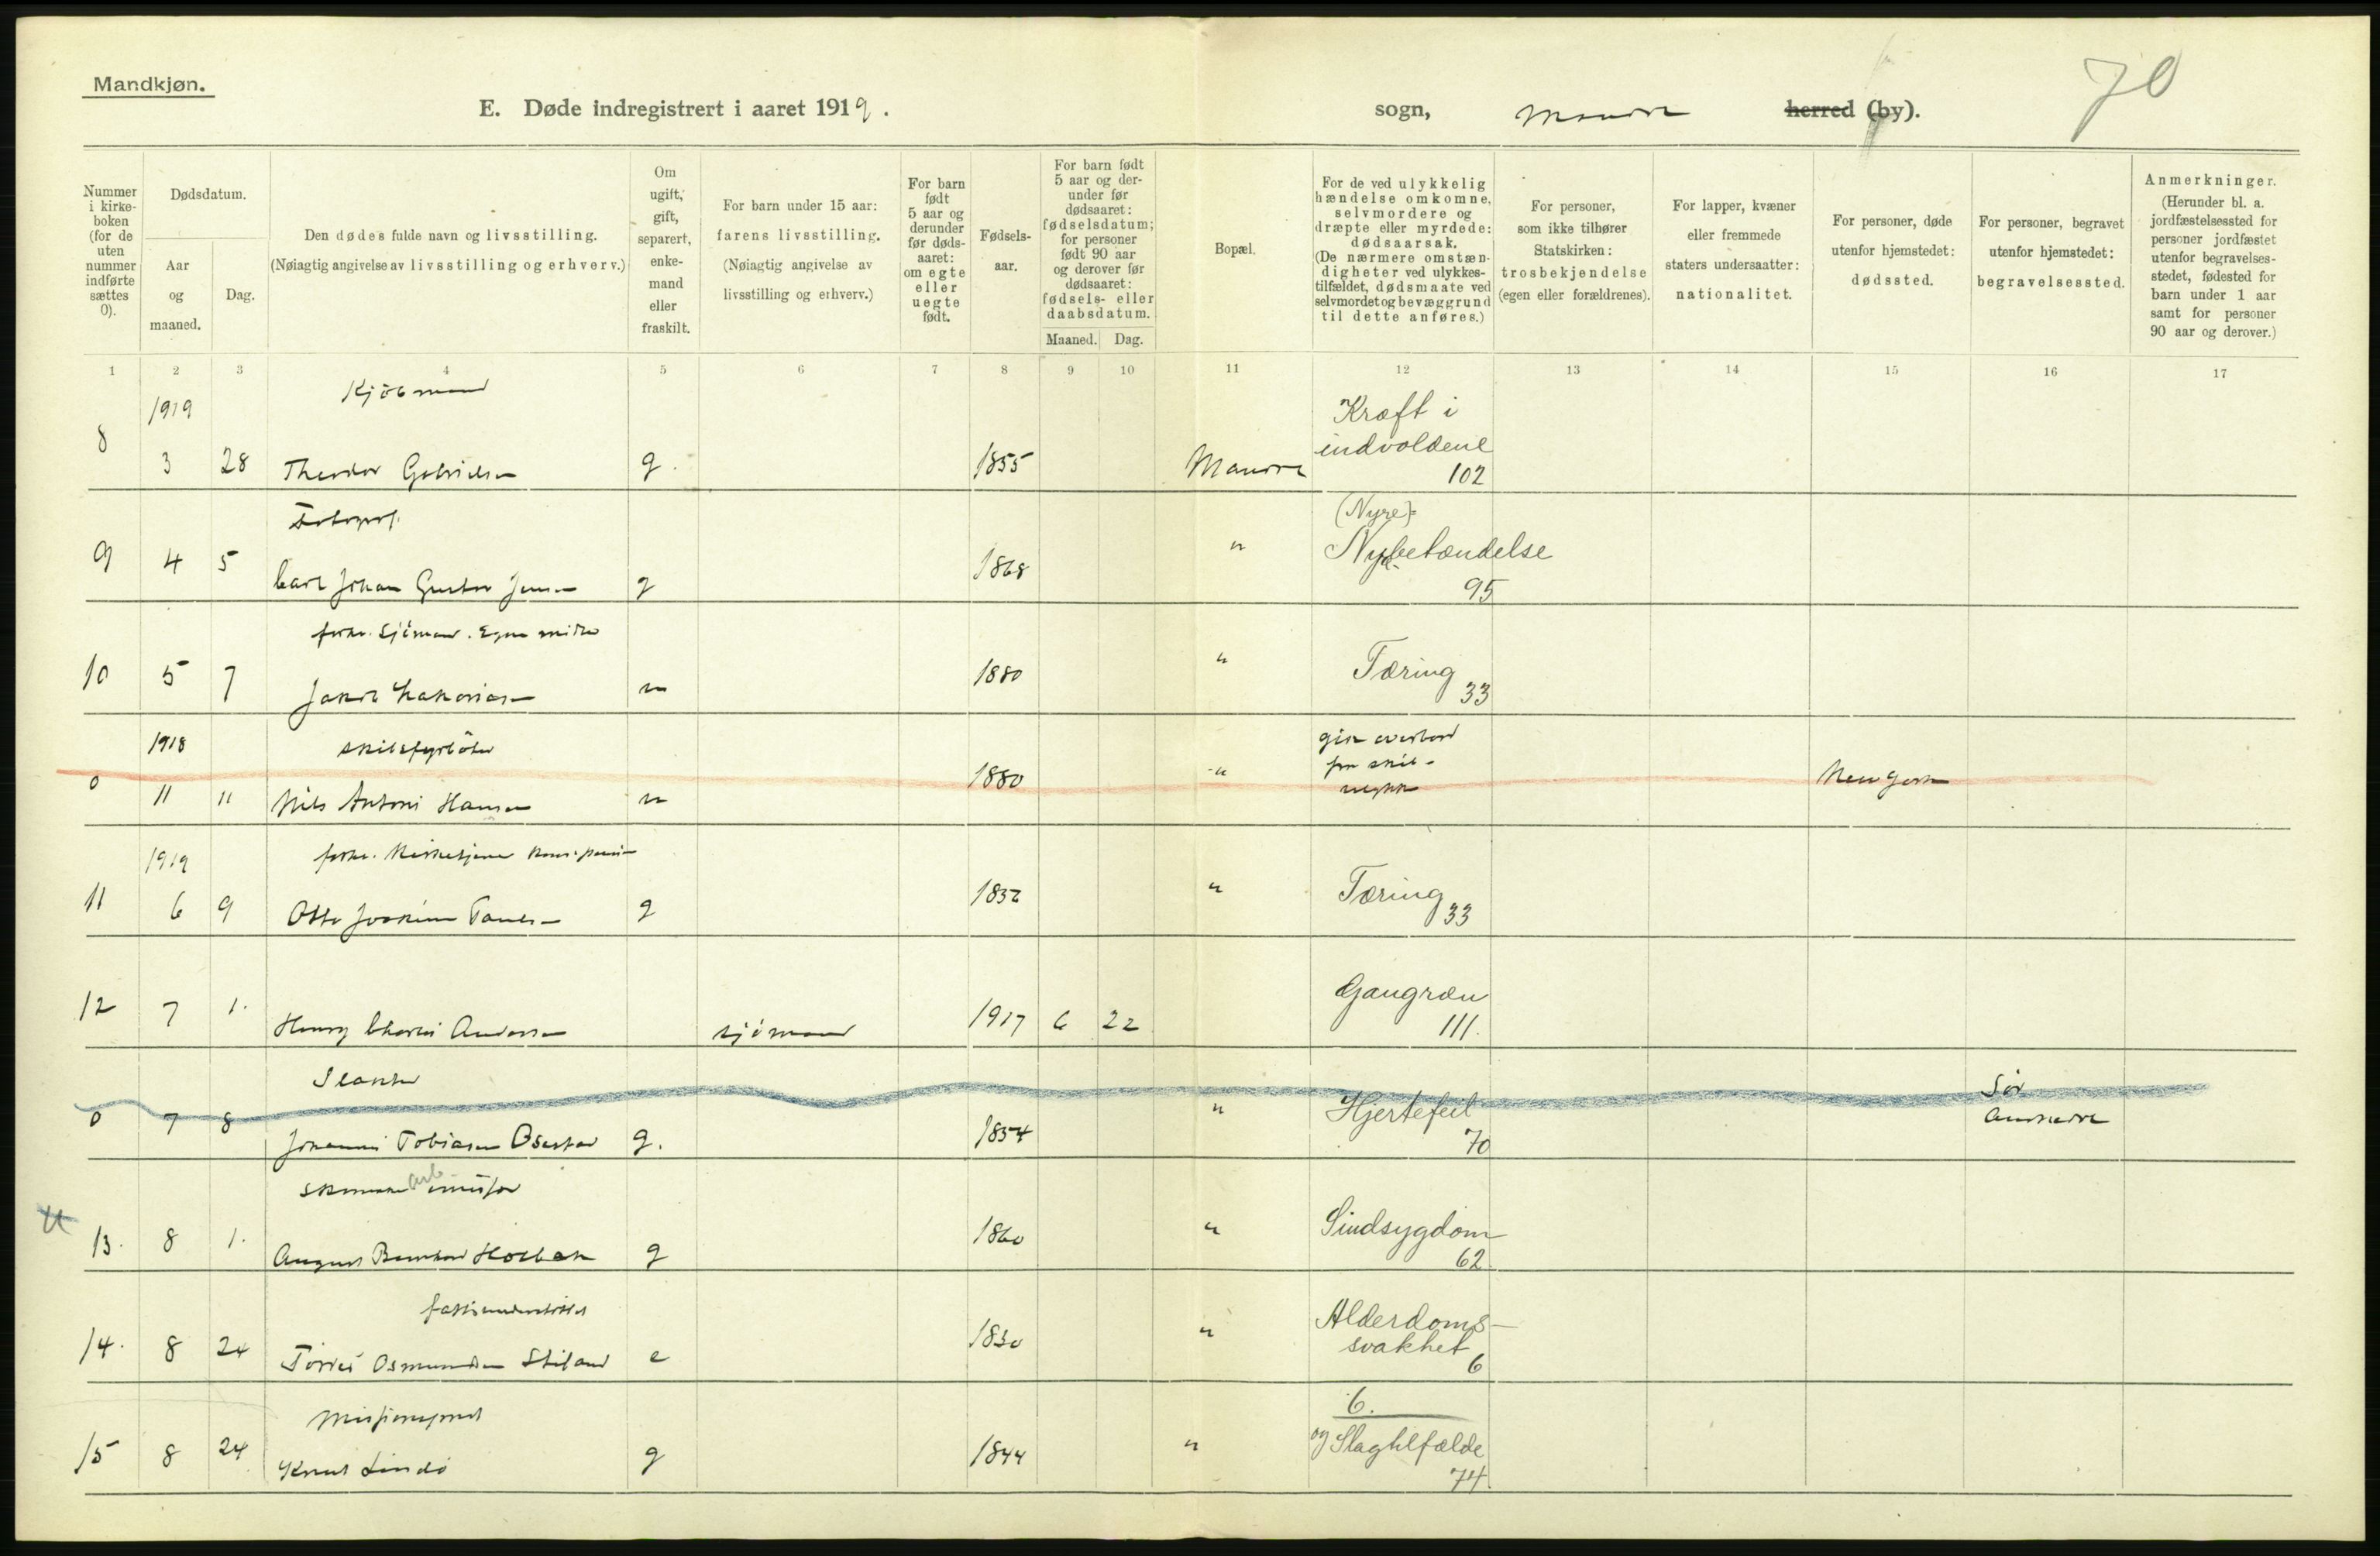 Mandkjøn.
E. Døde indregistrert i aaret 1919.
sogn,
herred (by).
70
Nummer i kirke-boken (for de uten nummer indførte sættes 0).
Dødsdatum.
Aar og maaned.
Dag.
Den dødes fulde navn og livsstilling.
(Nøiagtig angivelse av livsstilling og erhverv.)
Om ugift, gift, separert, enke-mand eller fraskilt.
For barn under 15 aar:
farens livsstilling.
(Nøiagtig angivelse av livsstilling og erhverv.)
For barn født 5 aar og derunder før døds-aaret: om egte eller uegte født.
Fødsels-aar.
For barn født 5 aar og der-under før dødsaaret: fødselsdatum; for personer født 90 aar og derover før dødsaaret: fødsels- eller daabsdatum.
Maaned.
Dag.
Bopæl.
For de ved ulykkelig hændelse omkomne, selvmordere og dræpte eller myrdede: dødsaarsak.
(De nærmere omstæn-digheter ved ulykkes-tilfældet, dødsmaate ved selvmordet og bevæggrund til dette anføres.)
For personer, som ikke tilhører Statskirken: trosbekjendelse (egen eller forældrenes).
For lapper, kvæner eller fremmede staters undersaatter: nationalitet.
For personer, døde utenfor hjemstedet: dødssted.
For personer, begravet utenfor hjemstedet: begravelsessted.
Anmerkninger.
(Herunder bl. a. jordfæstelsessted for personer jordfæstet utenfor begravelses-stedet, fødested for barn under 1 aar samt for personer 90 aar og derover.)
1 2 3 4 5 6 7 8 9 10 11 12 13 14 15 16 17
Kjöbmand
1919
8 3 28 Theodor Gabrielsen g. 1855
Kræft i indvoldene
102
Fotograf.
9 4 5 Carl Johan Gustav Jensen g 1868 "
(Nyre)=
betændelse
95
Sjömand. Egne midler
10 5 7 Jakob Zakariasen u 1880 " Tæring
33
1918
0 11 11 Nils Antoni Hansen u 1880 "
gik overbord
fra skib -
New York
1919
11 6 9 Otto Joakim g 1832 " Tæring
33
12 7 1. Henry Charles Andersen sjömand 1917 6 22
Gangræn
111.
Slakter
0 7 8 Johannes Tobiasen g. 1854 " Hjertefeil
70
Sör
Audnedal
arb
13. 8 1. August g 1860 " Sindsygdom
62
14. 8 24 Osmundsen e 1830 "
Alderdoms-
svakhet
6
15 8 24 Knut Lindö g 1844 "
6.
og Slagtilfælde
74.